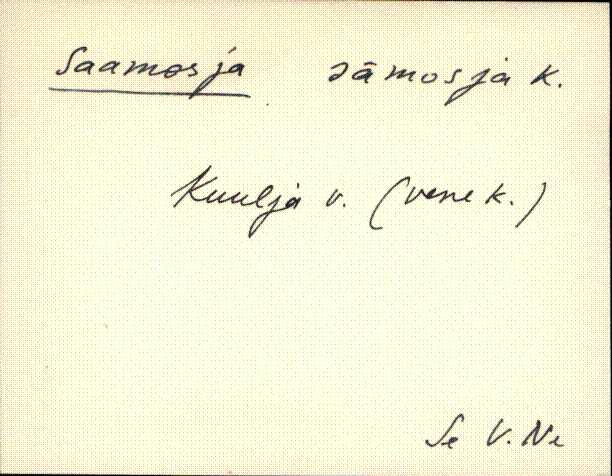 Saamosja sāmosja k.
Kuulja v. (vene k.)
Se V. Ne